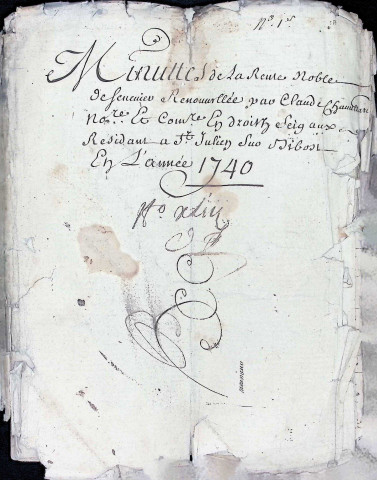 No. 1er
Minuttes de La Rente Noble
de senevier Renouvellée par Claude Chambeau
Nore Et Comre En droits Seigaux
Residant a St Julien Sur Bibost
En L'année 1740
No xliij